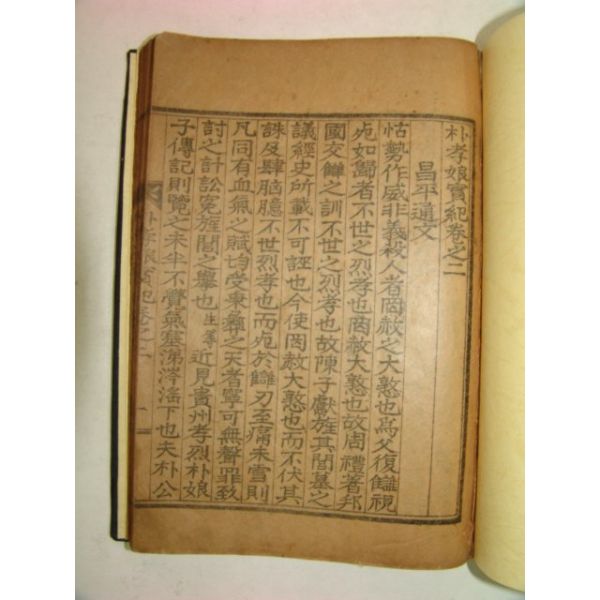 朴孝娘實紀卷之二
昌平通文
怙勢作威非義殺人者罔赦之大憝也爲父復讎視
死如歸者不世之烈孝也罔赦大憝也故周禮著邦
國交讎之訓不世之烈孝也故陳子獻旌其閭墓之
議經史所載不可誣也今使罔赦大憝也而不伏其
誅及肆胸臆不世烈孝也而死於讎刃至痛未雪則
凡同有血氣之賦均受秉彝之天者寧可無聲罪致
討之計訟寃旌閭之擧也生等近見貴州孝烈朴娘
子傳記則覽之未半不覺氣塞涕涔滛下也夫朴公
朴孝娘實紀卷之二 一